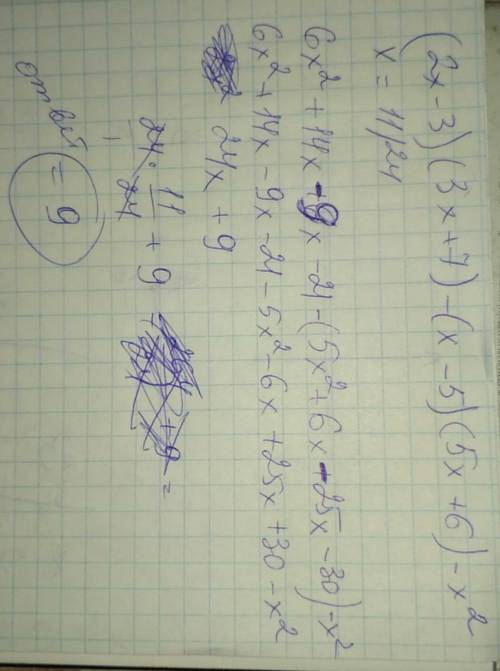 (2x-3)(3x+7)-(x-5)(5x+6)-x²
x = 11/24
6x²+14x-9x-21-(5x²+6x-25x-30)-x²
6x²+14x-9x-21-5x²-6x+25x+30-x²
24x+9
24·11/24+9 =
ответ = 9